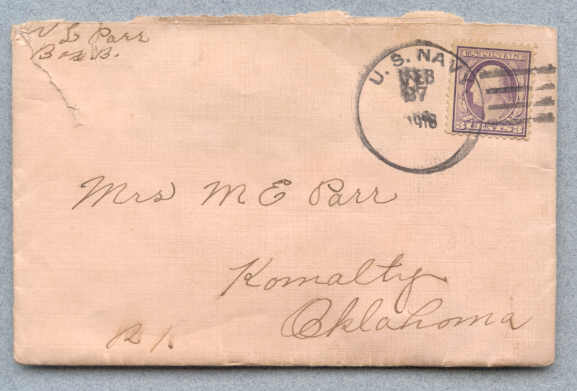 V L Parr
Box B.
U.S. NAVY
FEB
27
1918
U.S. POSTAGE
3 CENTS 3
Mrs M E Parr
Komalty
Oklahoma
R 1.